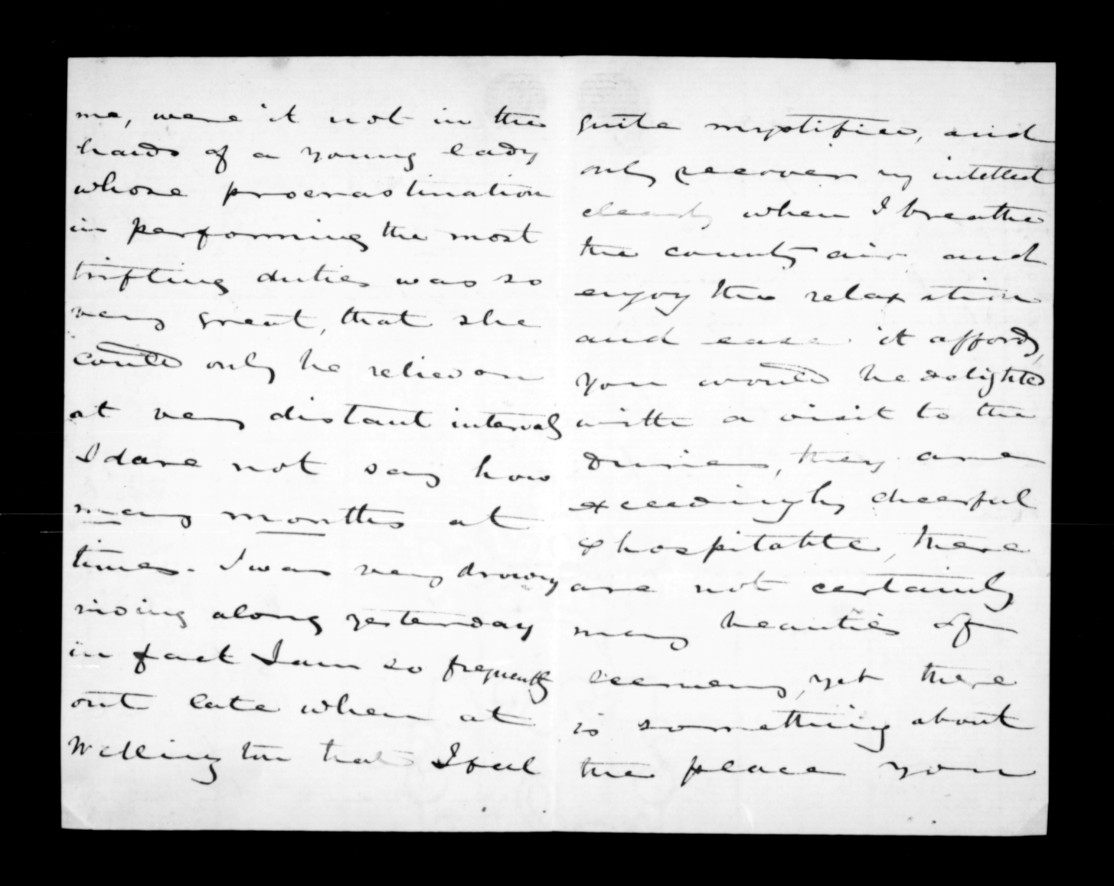 me, were it not in the
hands of a young lady
whose procrastination
in performing the most
trifling duties was so
very great, that she
could only be relied on
at very distant intervals
I dare not say how
many months at
times. I was very drowsy
riding along yesterday
in fact I am so frequently
out late when at
Wellington that I feel
quite mystified, and
only recover my intellect
clearly when I breathe
the country air and
enjoy the relaxation
and ease it affords,
you would be delighted
with a visit to the
they are
exceedingly cheerful
& hospitable, there
are not certainly
many beauties of
scenery, yet there
is something about
the place you